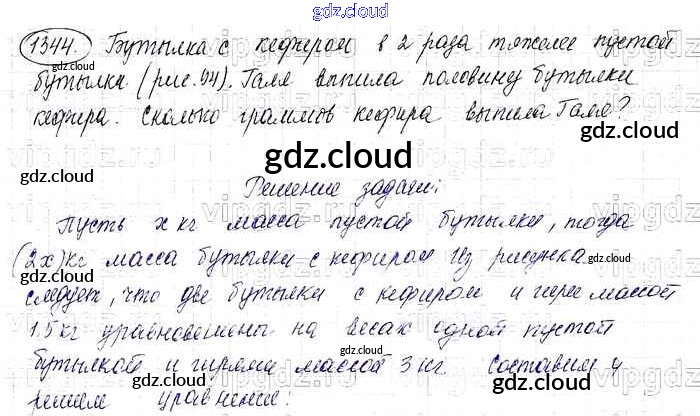 gdz.cloud
1344. Бутылка с кефиром в 2 раза тяжелее пустой
gdz.cloud
бутылки (рис. 94). Галя выпила половину бутылки
кефира. Сколько граммов кефира выпила Галя?
gdz.cloud
Решение задачи:
Пусть x кг масса пустой бутылки, тогда
(2x) кг масса бутылки с кефиром Из рисунка
gdz.cloud
следует, что две бутылки с кефиром и гири массой
1.5 кг уравновешены на весах одной пустой
бутылкой и гирями массой 3 кг Составим и
gdz.cloud
gdz.cloud
решим уравнение:
gdz.cloud